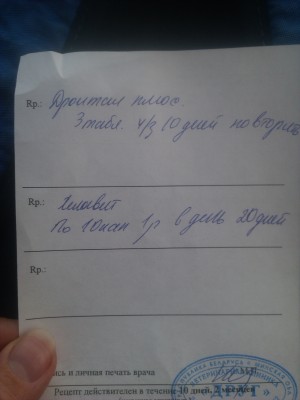 Rp.: Дронтал плюс.
3 табл. ч/з 10 дней повторить
Rp.: Хелавит
По 10 кап 1 р в день 20 дней
Rp.:
ись и личная печать врача
Рецепт действителен в течение 10 дней, 2 месяцев